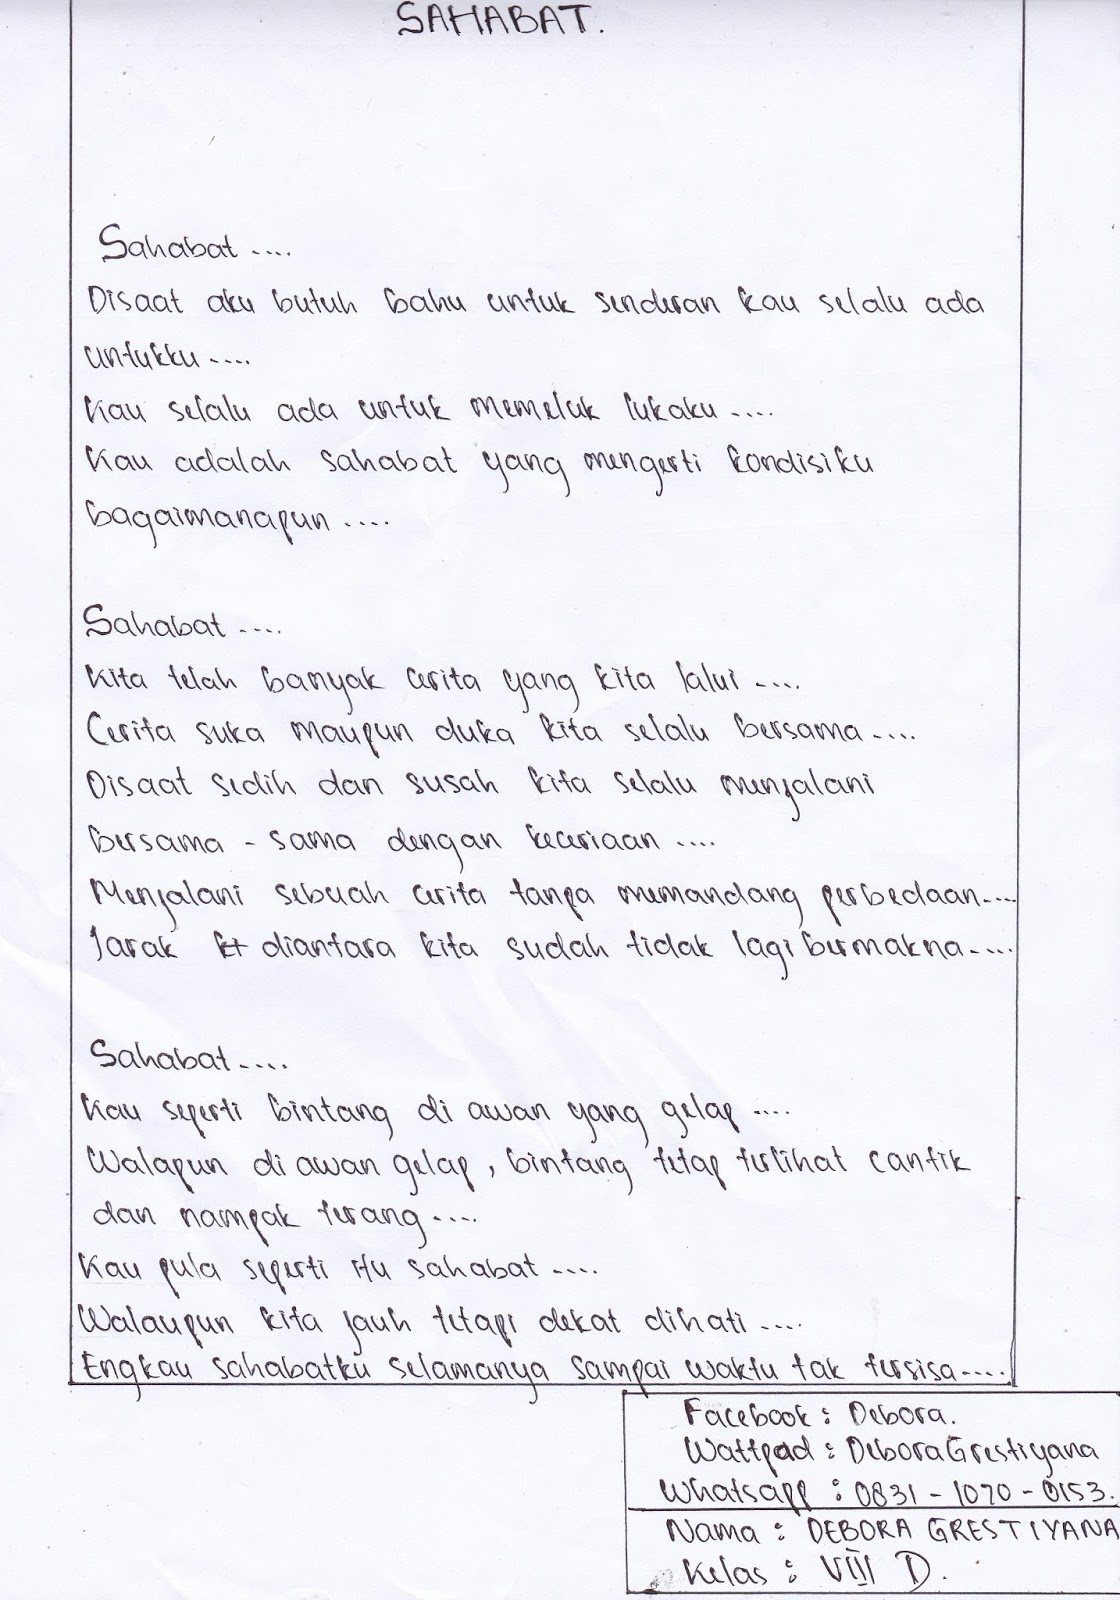 SAHABAT.
Sahabat ....
Disaat aku butuh bahu untuk senderan kau selalu ada
untukku ....
Kau selalu ada untuk memeluk lukaku ....
Kau adalah sahabat yang mengerti kondisiku
bagaimanapun ....
Sahabat ....
Kita telah banyak cerita yang kita lalui ....
Cerita suka maupun duka kita selalu bersama ....
Disaat sedih dan susah kita selalu menjalani
bersama - sama dengan keceriaan ....
Menjalani sebuah cerita tanpa memandang perbedaan....
Jarak diantara kita sudah tidak lagi bermakna....
Sahabat....
Kau seperti bintang di awan yang gelap ....
Walapun di awan gelap, bintang tetap terlihat cantik
dan nampak terang ....
Kau pula seperti itu sahabat ....
Walaupun kita jauh tetapi dekat dihati ....
Engkau sahabatku selamanya sampai waktu tak tersisa....
Facebook : Debora.
Wattpad : DeboraGrestiyana
Whatsapp : 0831 - 1070 - 0153.
Nama : DEBORA GRESTIYANA
Kelas : VIII D.